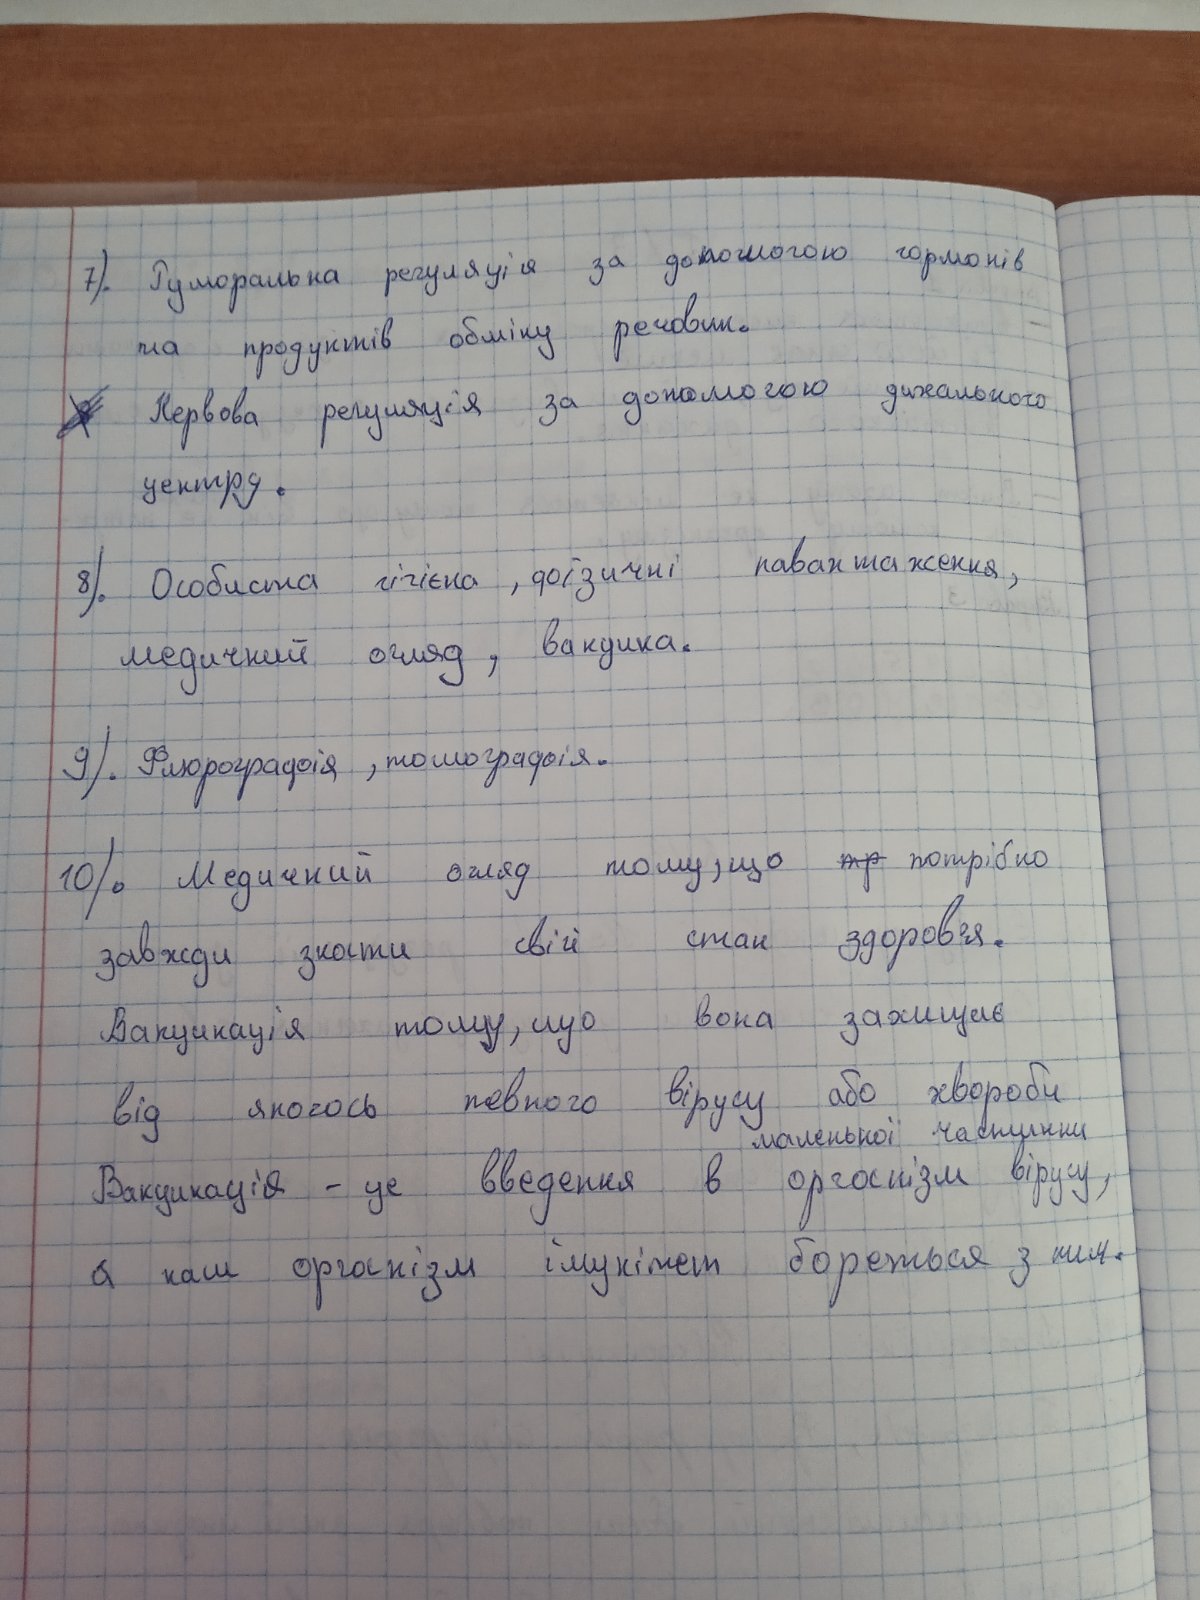 7). Гуморальна регуляція за допомогою гормонів
та продуктів обміну речовин.
Нервова регуляція за допомогою дихального
центру.
8). Особиста гігієна, фізичні навантаження,
медичний огляд, вакцина.
9). Флюрографія, томографія.
10). Медичний огляд тому, що потрібно
завжди знати свій стан здоров'я.
Вакцинація тому, що вона захищає
від якогось певного вірусу або хвороби
маленької частинки
Вакцинація - це введення в організм вірусу,
а наш організм імунітет бореться з ним.